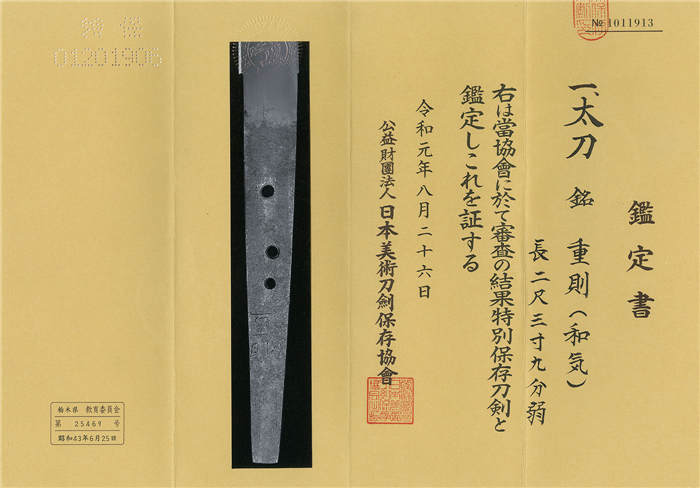 № 1011913
鑑定書
一、太刀 銘 重則(和気)
長二尺三寸九分弱
右は當協會に於て審査の結果特別保存刀剣と
鑑定しこれを証する
令和元年八月二十六日
公益財團法人 日本美術刀劍保存協會
01201906
栃木県 教育委員会
第 25469 号
昭和43年6月25日